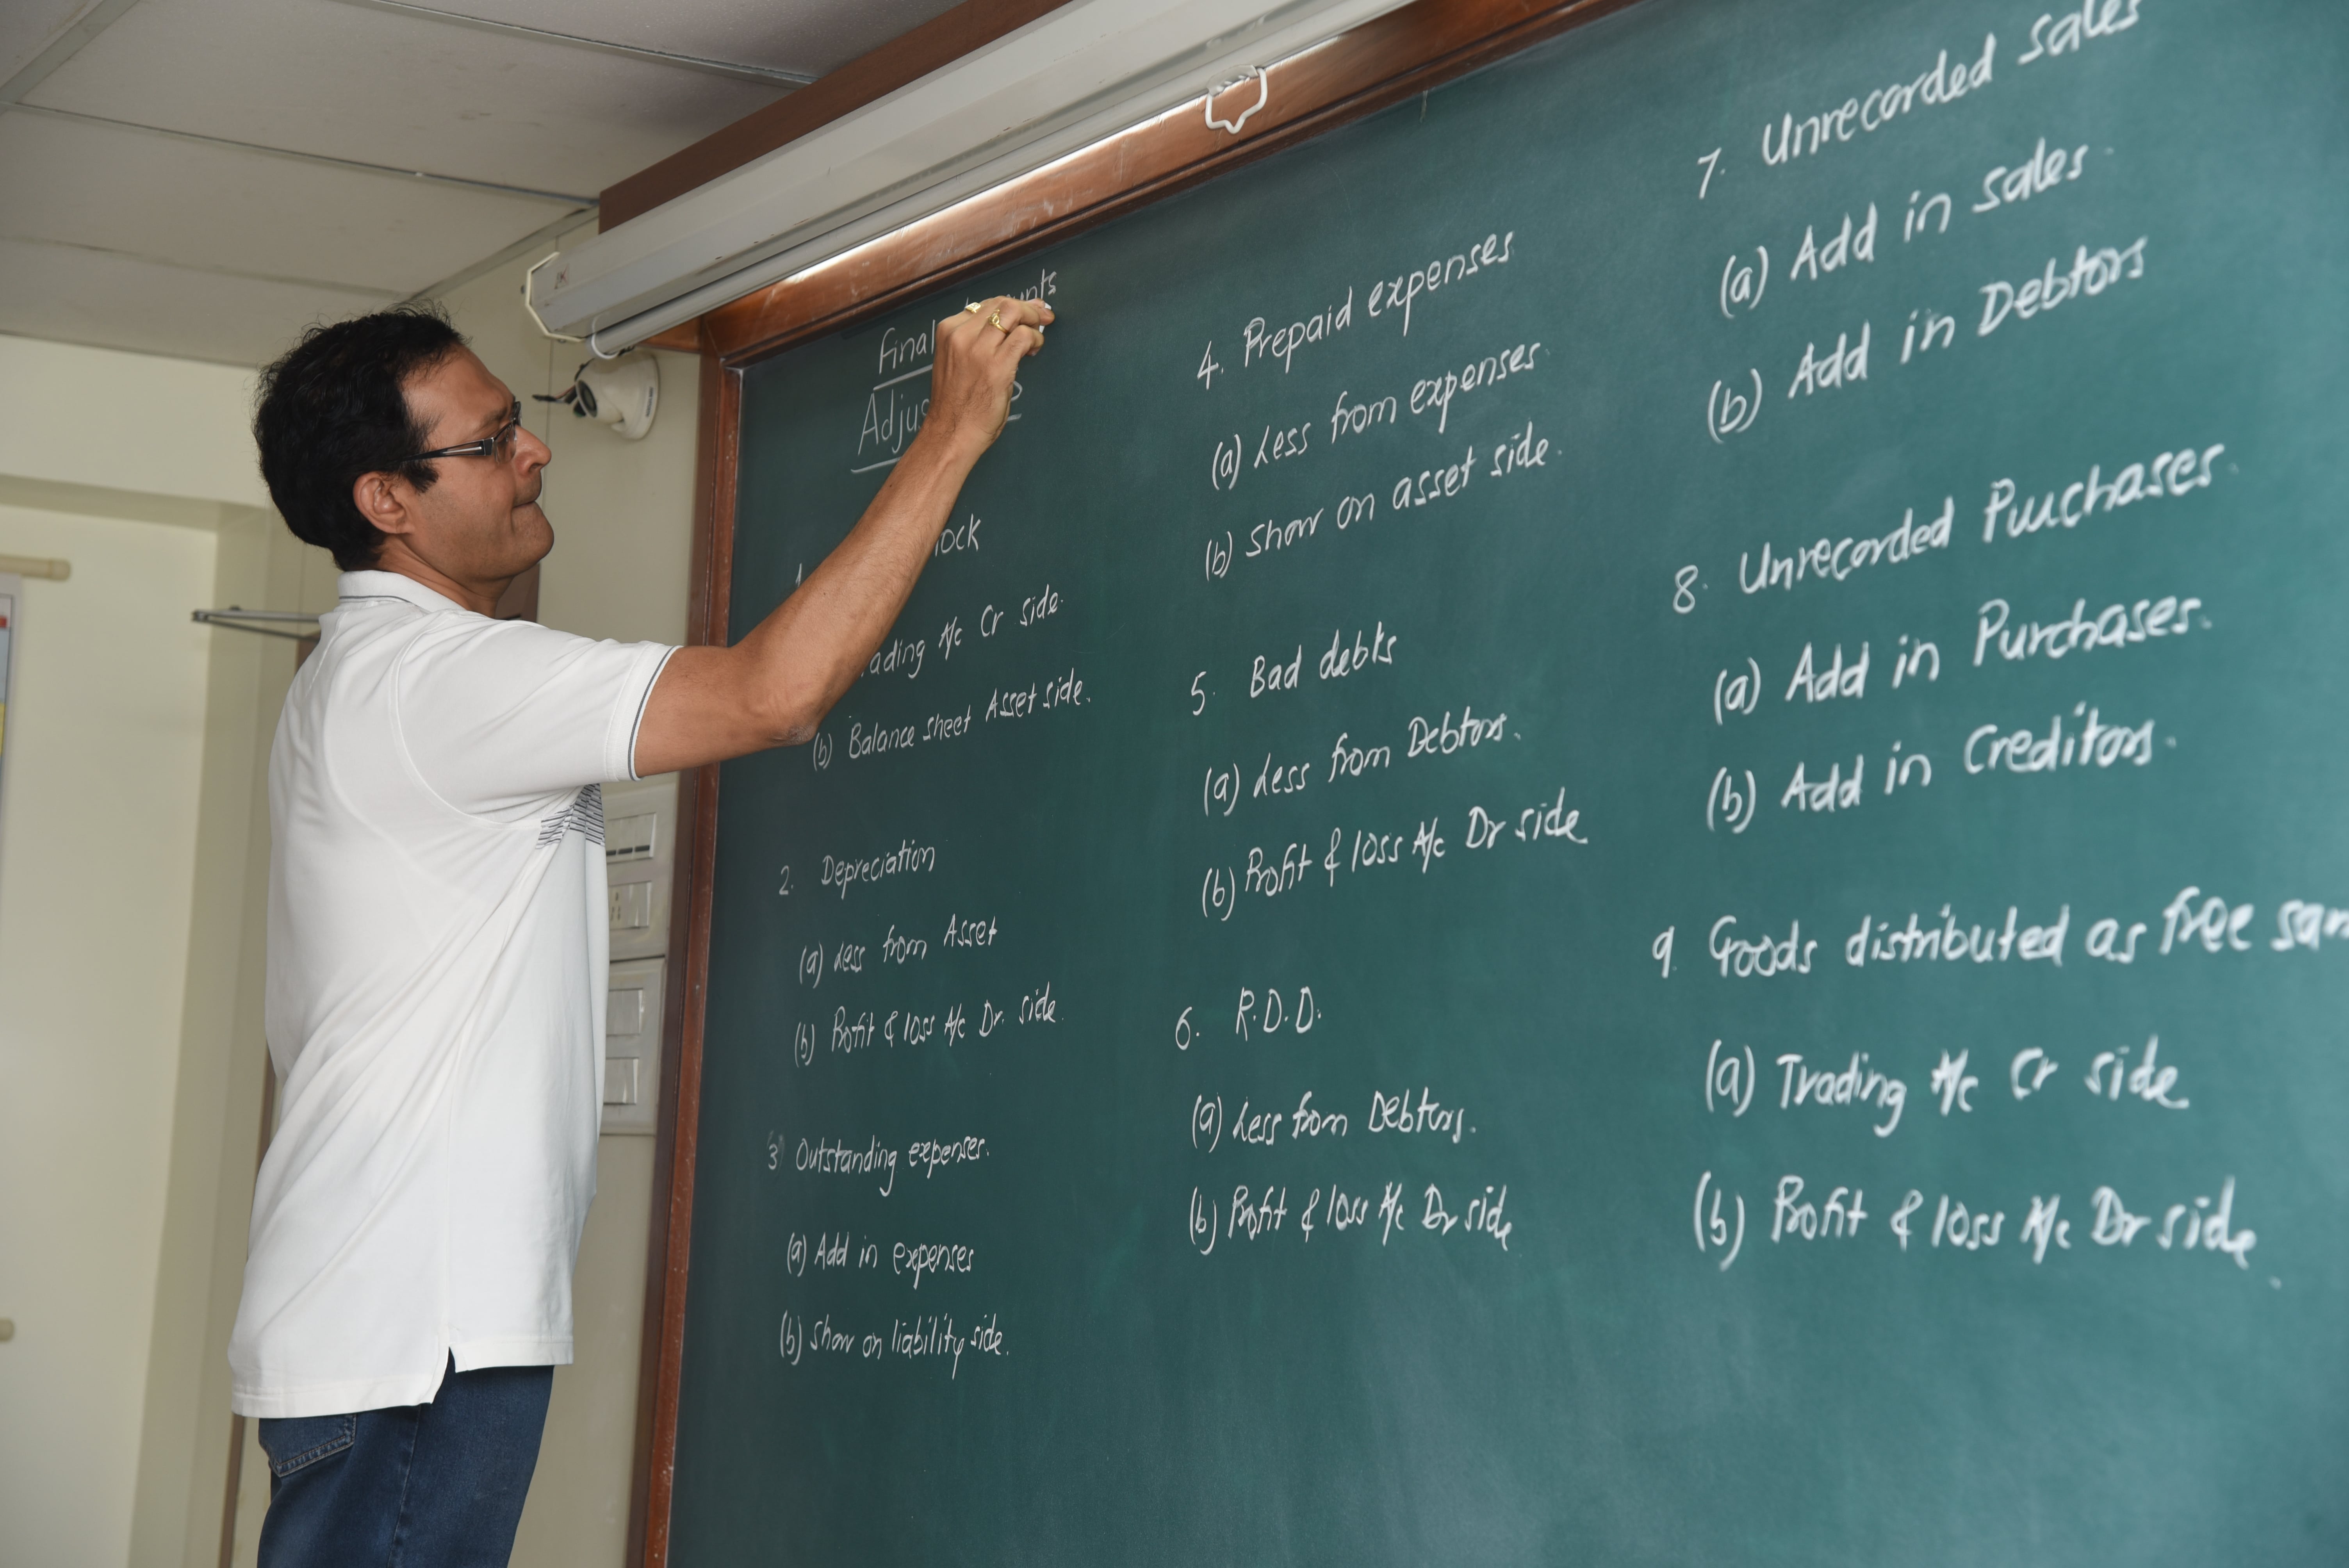 Final
Adjus
1
ock
ading A/c Cr side.
(b) Balance sheet Asset side.
2. Depreciation
(a) Less from Asset
(b) Profit & loss A/c Dr. side.
3 Outstanding expenses.
(a) Add in expenses
(b) Show on liability side.
4. Prepaid expenses
(a) Less from expenses.
(b) Show on asset side.
5. Bad debts
(a) Less from Debtors.
(b) Profit & loss A/c Dr side
6. R.D.D.
(a) Less from Debtors.
(b) Profit & loss A/c Dr side
7. Unrecorded sales
(a) Add in sales.
(b) Add in Debtors
8. Unrecorded Purchases.
(a) Add in Purchases.
(b) Add in Creditors.
9. Goods distributed as free sam
(a) Trading A/c Cr side
(b) Profit & loss A/c Dr side.